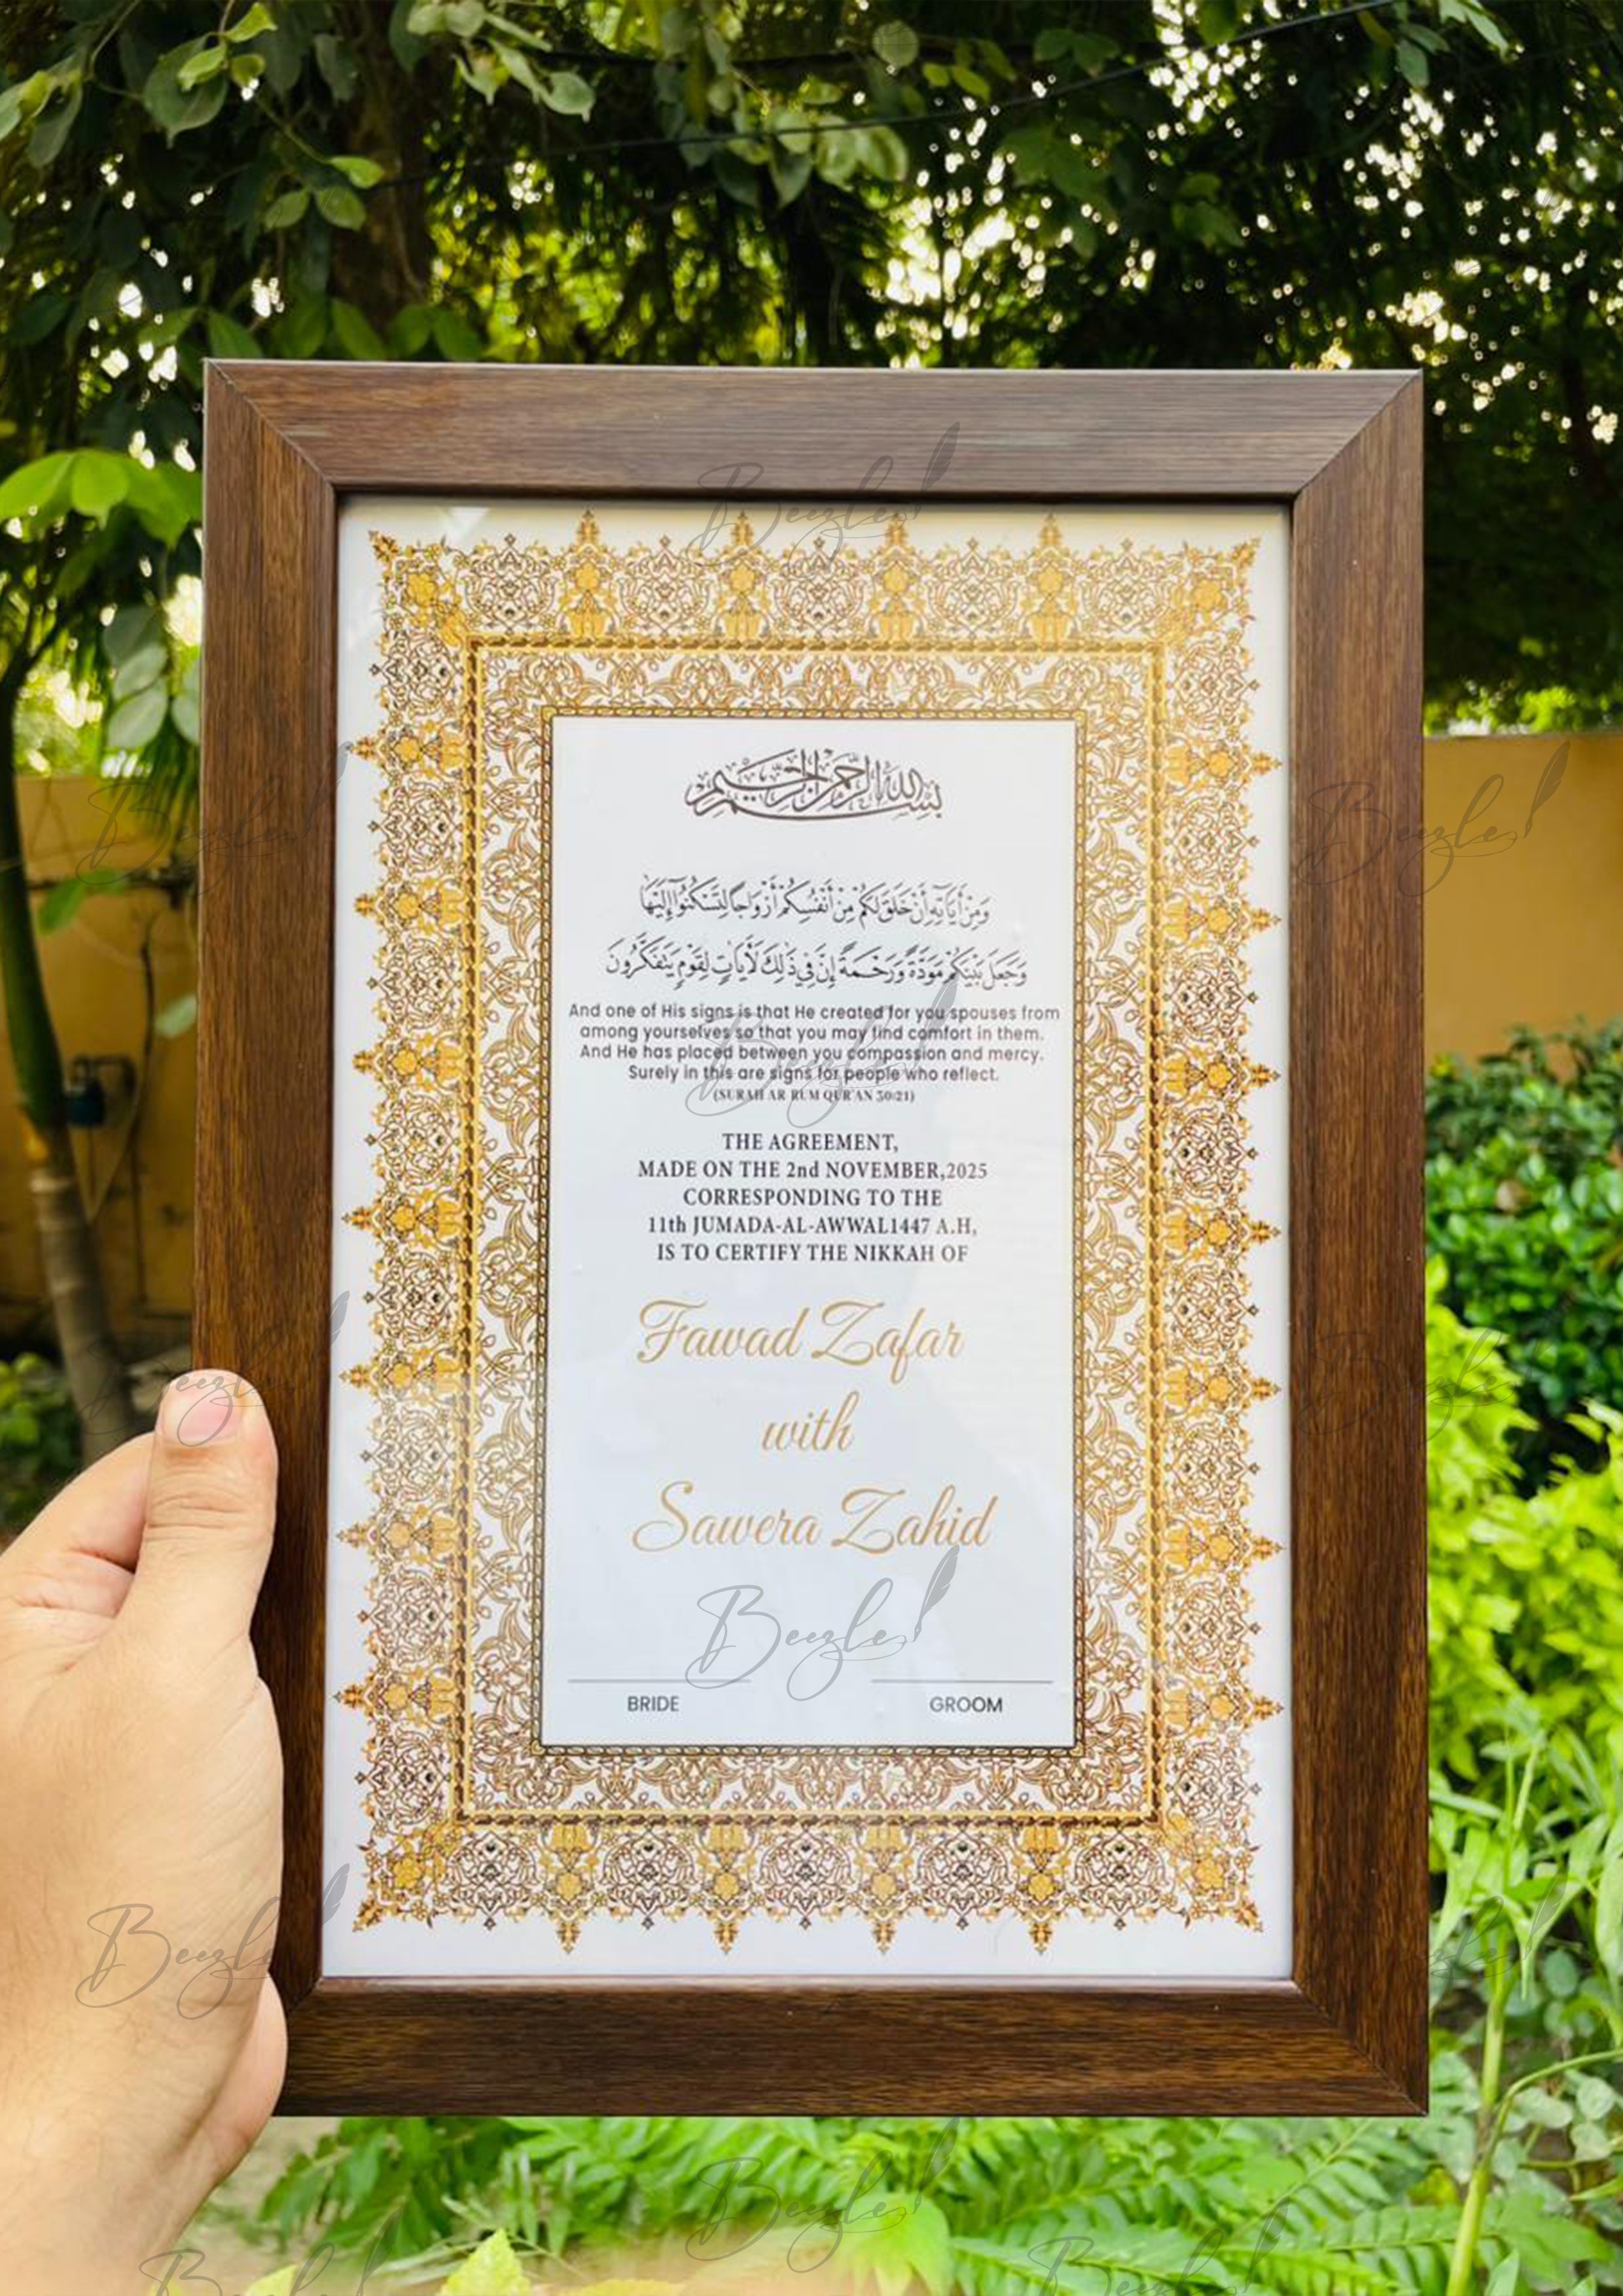 بسم الله الرحمن الرحيم
وَمِنْ أَيَاتِهِ أَنْ خَلَقَ لَكُمْ مِنْ أَنْفُسِكُمْ أَزْوَاجًا لِتَسْكُنُوا إِلَيْهَا
وَجَعَلَ بَيْنَكُمْ مَوَدَّةً وَرَحْمَةً إِنَّ فِي ذَلِكَ لَأَيَاتٍ لِقَوْمٍ يَتَفَكَّرُونَ
And one of His signs is that He created for you spouses from
among yourselves so that you may find comfort in them.
And He has placed between you compassion and mercy.
Surely in this are signs for people who reflect.
(SURAH AR RUM QUR'AN 30:21)
THE AGREEMENT,
MADE ON THE 2nd NOVEMBER,2025
CORRESPONDING TO THE
11th JUMADA-AL-AWWAL1447 A.H,
IS TO CERTIFY THE NIKKAH OF
Fawad Zafar
with
Sawera Zahid
BRIDE GROOM
Beezle